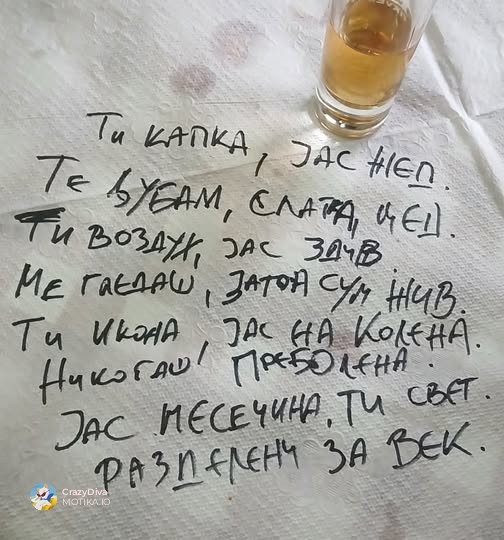 Ти КАПКА, ЈАС ЖЕД.
ТЕ ЉУБАМ, СЛАТКА, МЕД.
ТИ ВОЗДУХ, ЈАС ЗДИВ.
МЕ ГЛЕДАШ, ЗАТОА СУМ ЖИВ.
ТИ ИКОНА, ЈАС НА КОЛЕНА.
НИКОГАШ ПРЕБОЛЕНА.
ЈАС МЕСЕЧИНА, ТИ СВЕТ.
РАЗДЕЛЕНИ ЗА ВЕК.
CrazyDiva
MOTIKA.IO